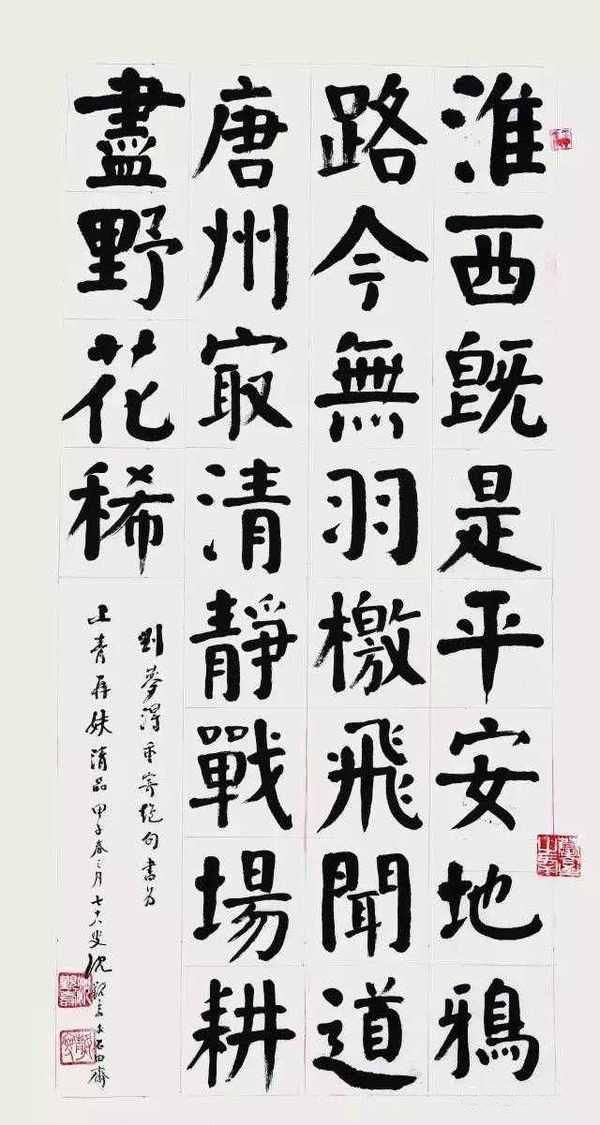 淮西既是平安地鴉
路今無羽檄飛聞道
唐州㝡清靜戰場耕
盡野花稀
劉夢得重寄絕句書為
青妹清品甲子春三月七十八叟沈觀壽石田齋